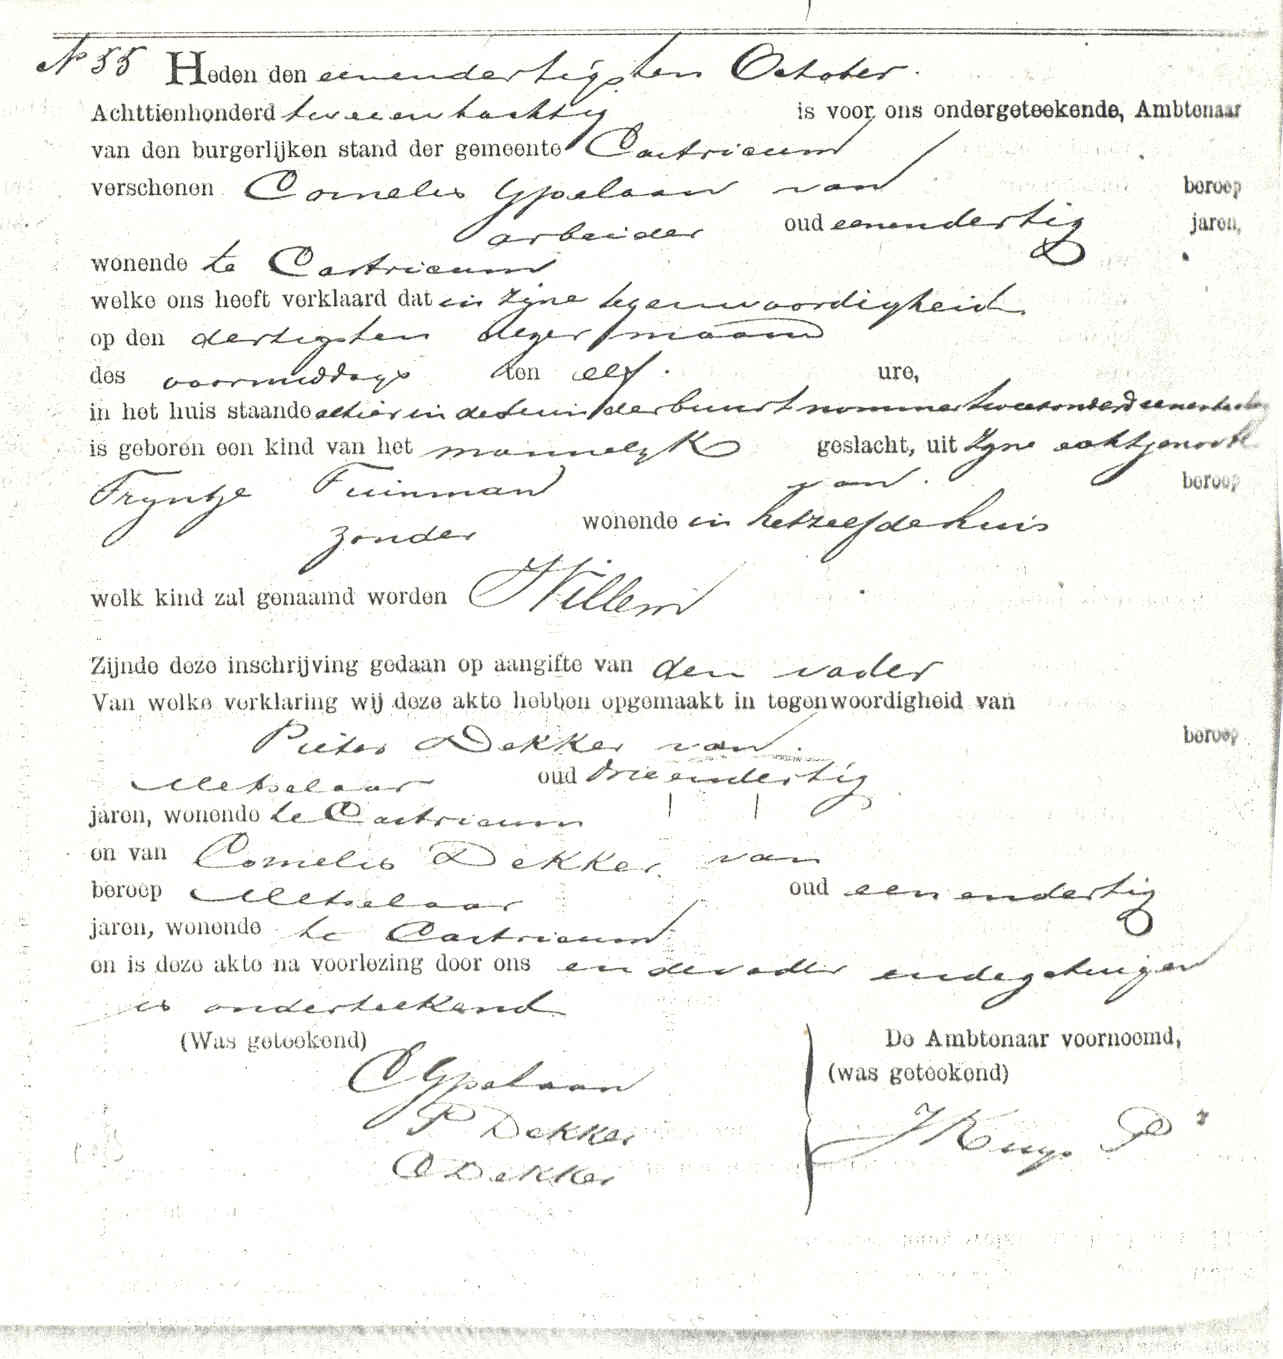 No 55 Heden den eenendertigsten October
Achttienhonderd tweeentachtig is voor ons ondergeteekende, Ambtenaar
van den burgerlijken stand der gemeente Castricum
verschenen Cornelis Ypelaan van beroep
arbeider oud eenendertig jaren,
wonende te Castricum
welke ons heeft verklaard dat in zijne tegenwoordigheid
op den dertigsten dezer maand
des voormiddags ten elf ure,
in het huis staande alhier in de buurt nommer tweehonderd
is geboren een kind van het mannelijk geslacht, uit zijne echtgenoote
Tryntje Tuinman van beroep
zonder wonende in hetzelfde huis
welk kind zal genaamd worden Willem
Zijnde deze inschrijving gedaan op aangifte van den vader
Van welke verklaring wij deze akte hebben opgemaakt in tegenwoordigheid van
Pieter Dekker van beroep
Metselaar oud drieendertig
jaren, wonende te Castricum
en van Cornelis Dekker van
beroep Metselaar oud eenendertig
jaren, wonende te Castricum
en is deze akte na voorlezing door ons en de vader en de getuigen
is onderteekend
(Was geteekend) De Ambtenaar voornoemd,
(was geteekend)
C Ypelaan
P Dekker
C Dekker